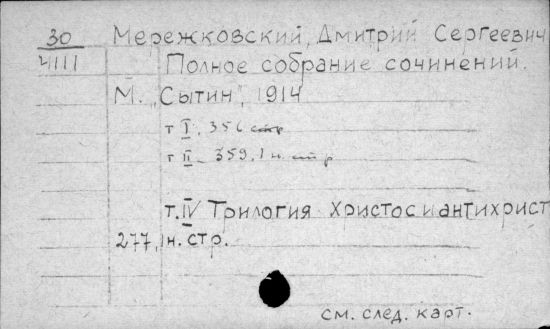 30 Мережковский, Дмитрий Сергеевич
4111 Полное собрание сочинений.
М. "Сытин", 1914
т I, 356 стр
т II - 359, 1 н. стр
т. IV Трилогия Христос и антихрист
277, 1н. стр.
см. след. карт.